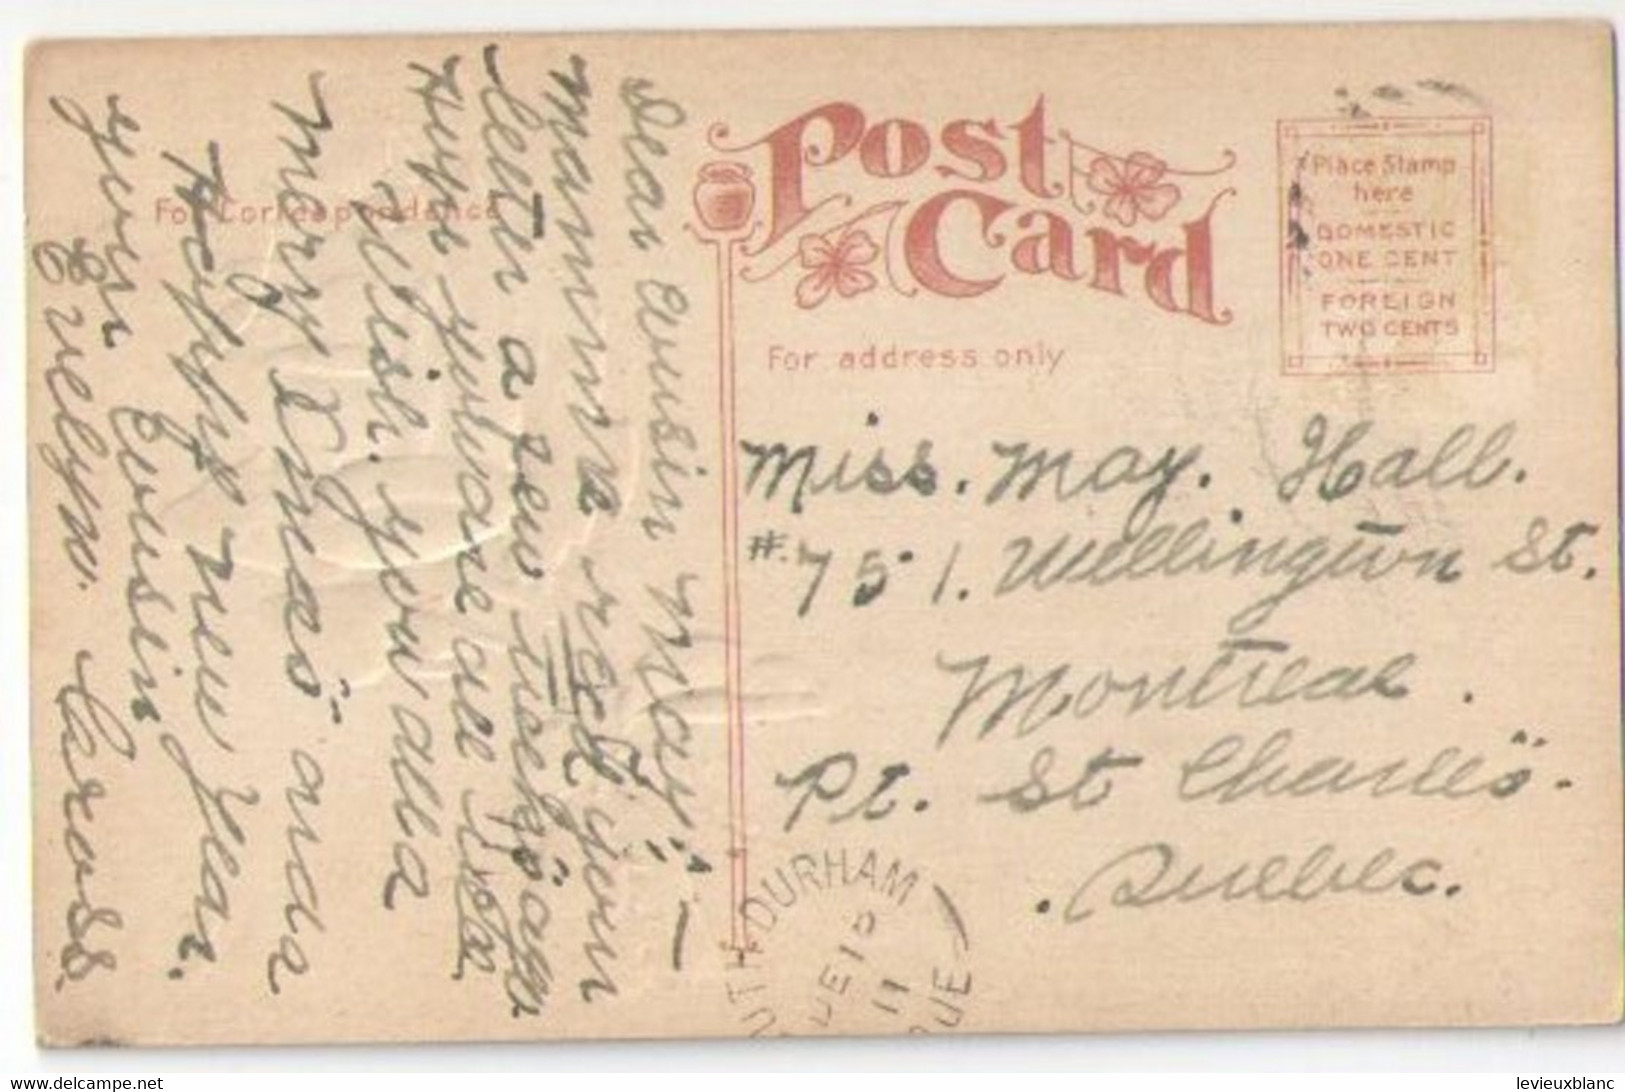 Post
Card
For Correspondence
For address only
Place Stamp
here
DOMESTIC
ONE CENT
FOREIGN
TWO CENTS
Dear Cousin May:-
Mamma rec'd your
letter a few weeks ago
Hope you are all well
Wish you all a
Merry Xmas and a
Happy New Year.
your Cousin
Evelyn Cross.
Miss. May. Hall.
#.751. Wellington St.
Montreal.
Pt. St Charles.
Quebec.
UTH DURHAM
DE 19
11
QUE
levieuxblanc
www.delcampe.net